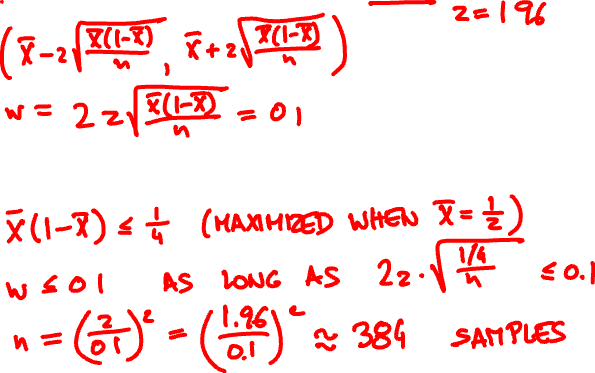 z=1 96
(x̄-z√(x̄(1-x̄)/n), x̄+z√(x̄(1-x̄)/n))
w = 2z√(x̄(1-x̄)/n) = 0 1
x̄(1-x̄) ≤ 1/4 (MAXIMIZED WHEN x̄=1/2)
w ≤ 0 1 AS LONG AS 2z·√((1/4)/n) ≤ 0.1
n = (z/0 1)² = (1.96/0.1)² ≈ 384 SAMPLES